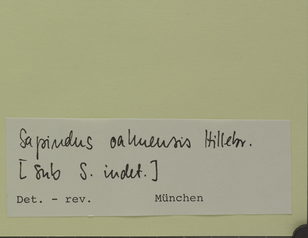 Sapindus oahuensis Hillebr.
[sub S. indet.]
Det. - rev. München